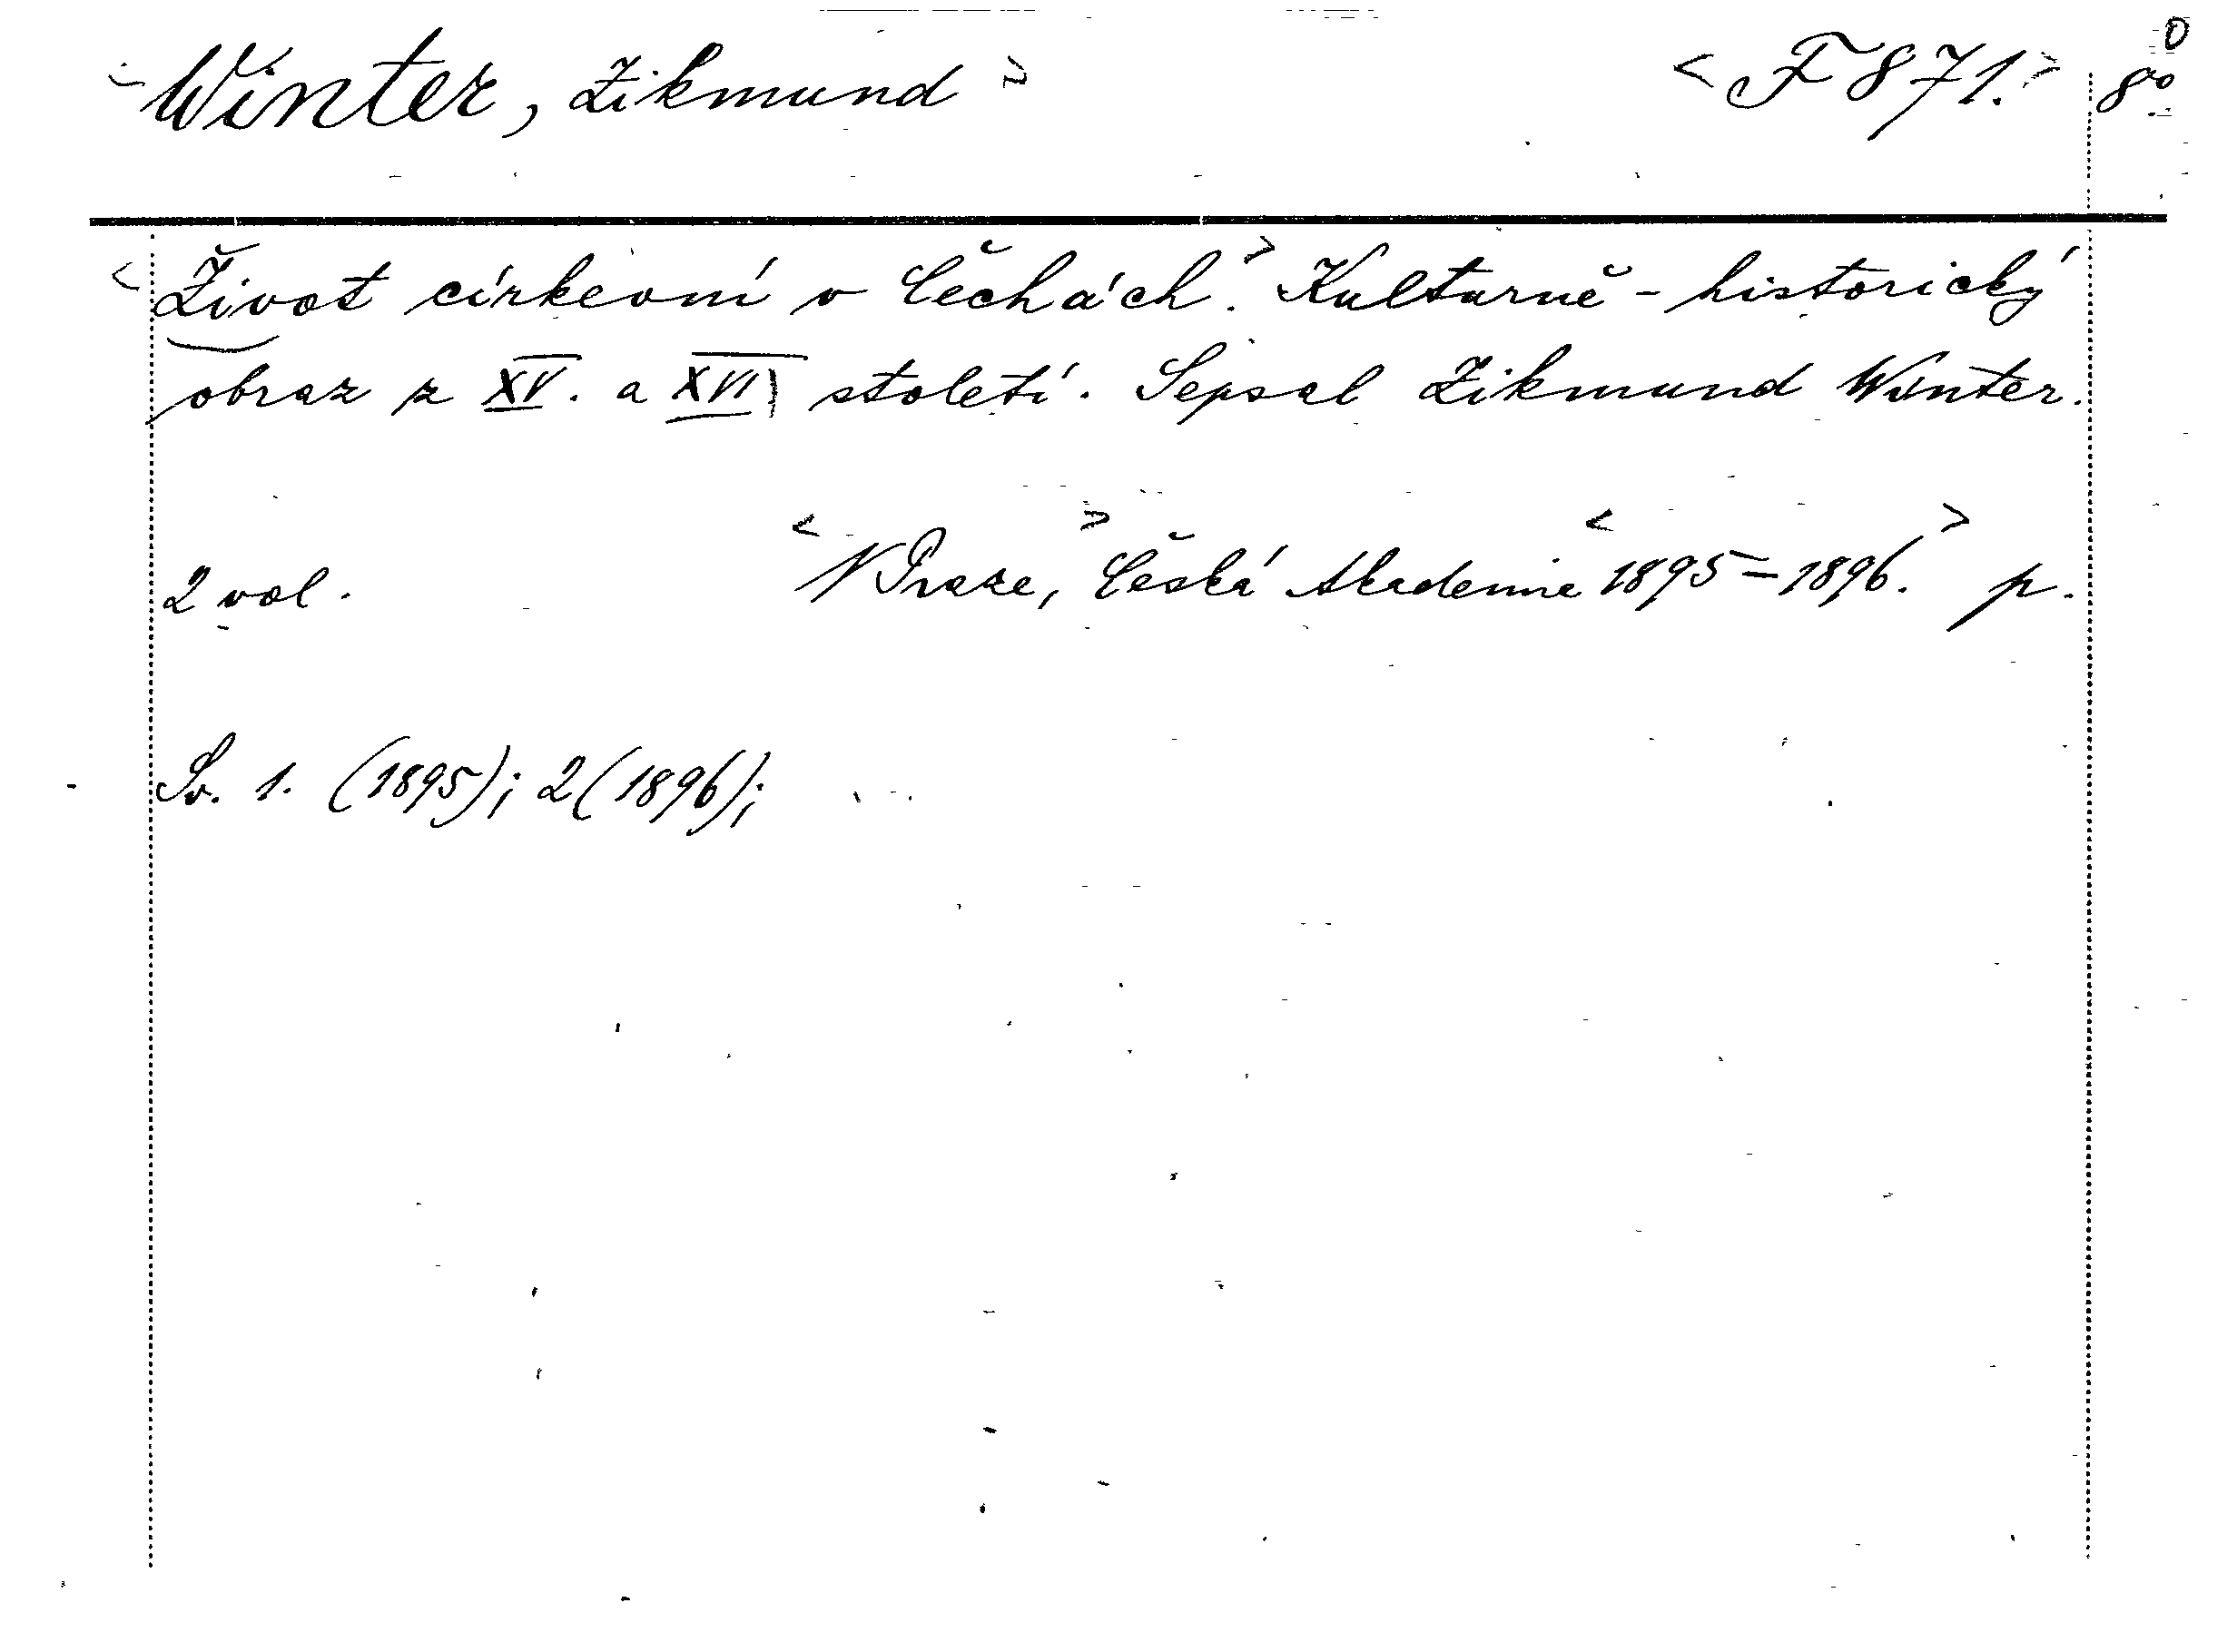 <Winter, Zikmund> <F 871.> 8°
<Život církevní v Čechách.> Kulturně-historický
obraz z XV. a XVI století. Sepsal Zikmund Winter.
2 vol. <V Praze,> Česká Akademie <1895-1896.> p.
Sv. 1. (1895); 2 (1896);